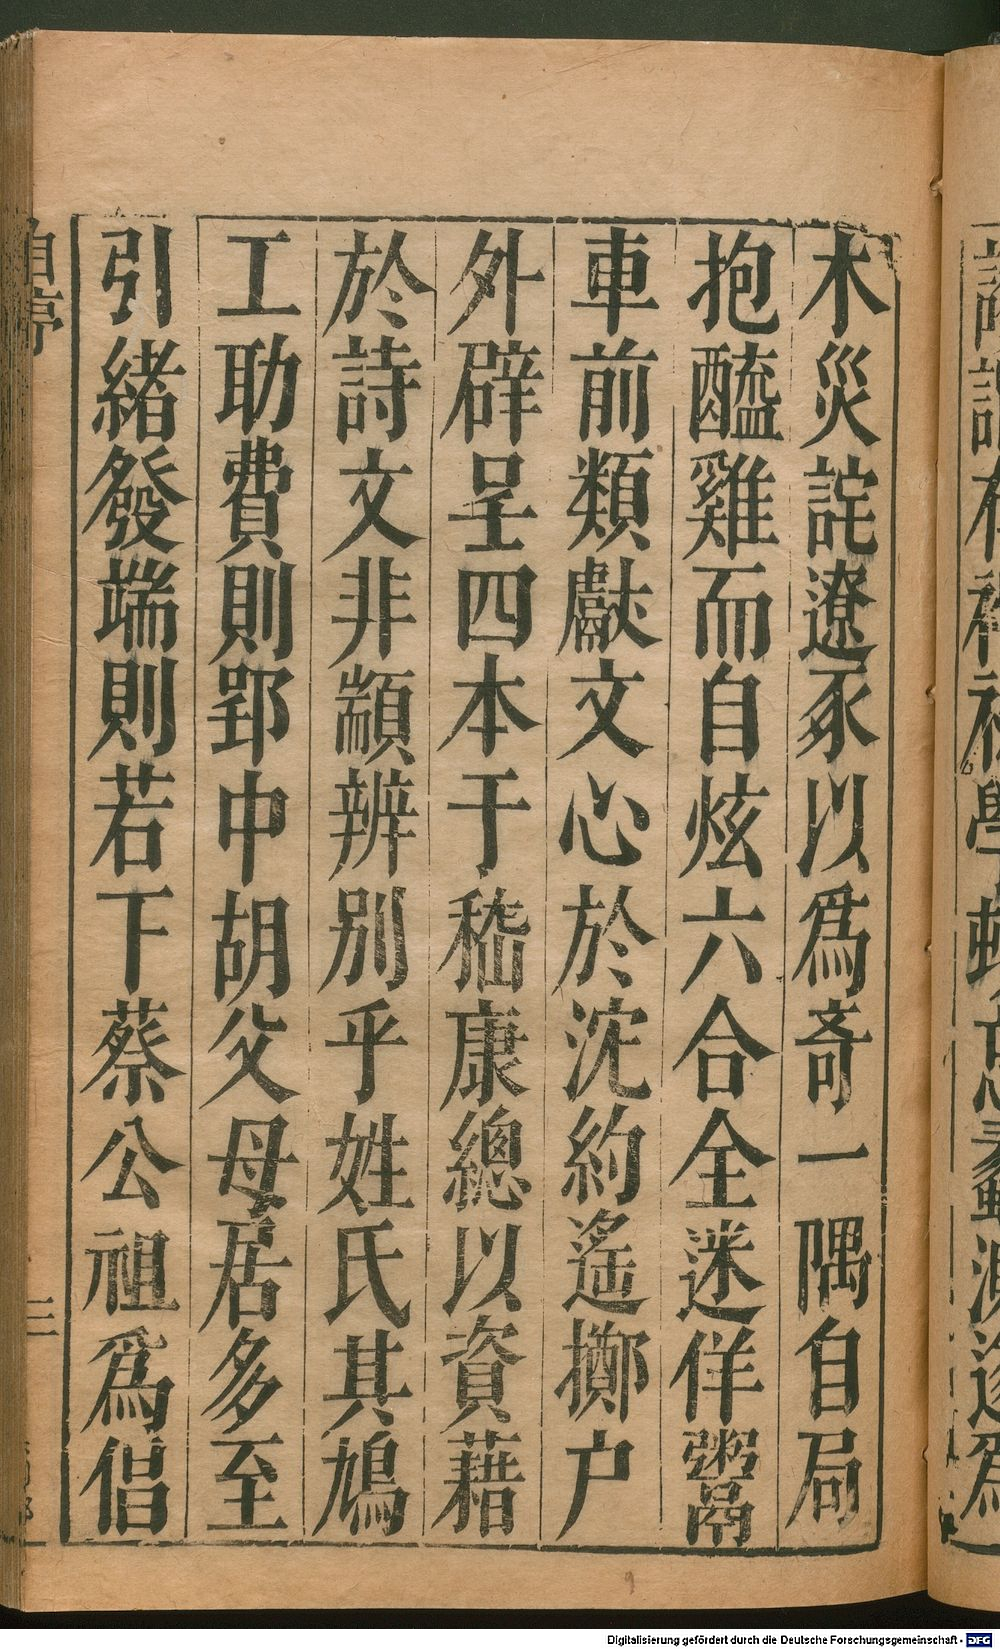 木災詫遼豕以爲奇一隅自局
抱醯雞而自炫六合全迷佯鬻
車前類獻文心於沈約遙擲户
外辟呈四本于嵇康總以資藉
於詩文非顓辨別乎姓氏其鳩
工助費則郢中胡父母居多至
引緒發端則若下蔡公祖爲倡
自序
三
Digitalisierung gefördert durch die Deutsche Forschungsgemeinschaft - DFG